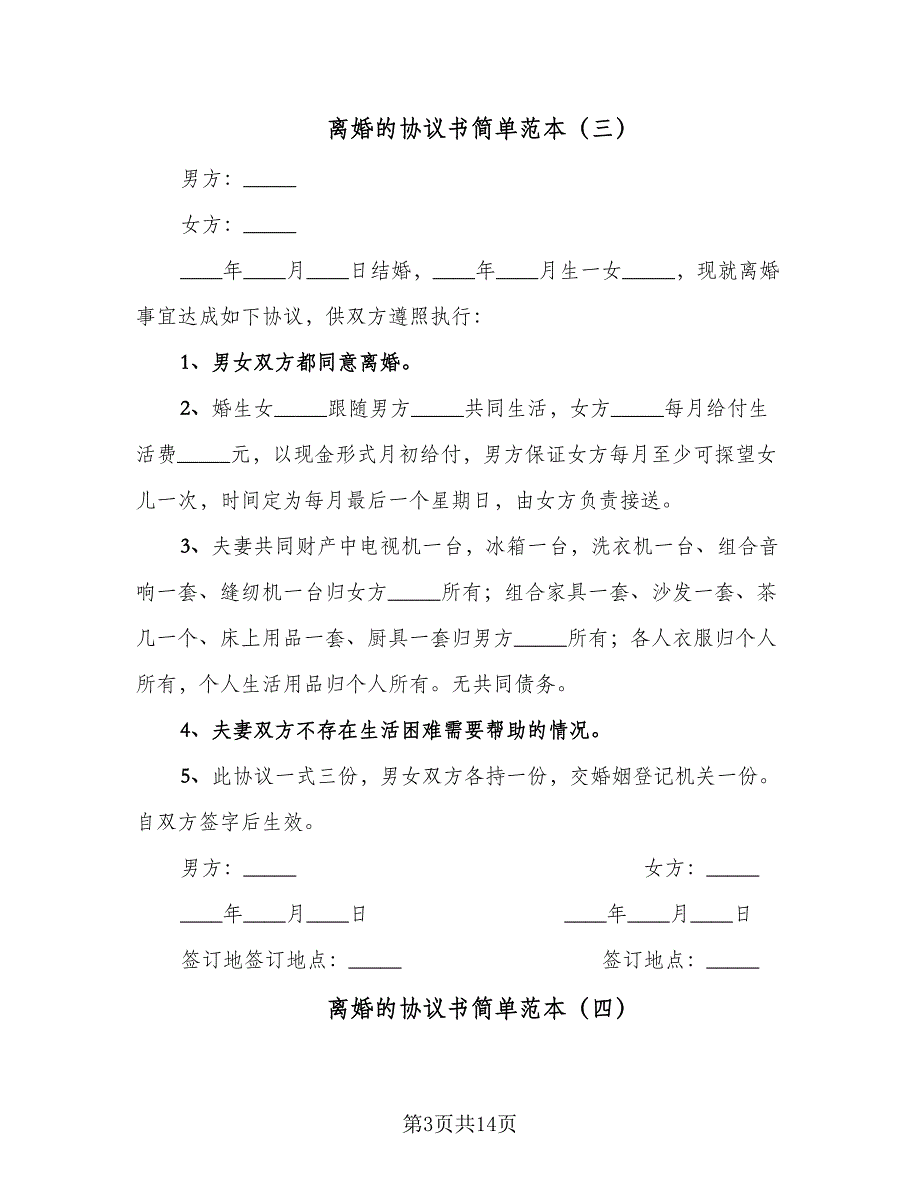 离婚的协议书简单范本（三）
男方：_____
女方：_____
____年____月____日结婚，____年____月生一女_____，现就离婚
事宜达成如下协议，供双方遵照执行：
1、男女双方都同意离婚。
2、婚生女_____跟随男方_____共同生活，女方_____每月给付生
活费_____元，以现金形式月初给付，男方保证女方每月至少可探望女
儿一次，时间定为每月最后一个星期日，由女方负责接送。
3、夫妻共同财产中电视机一台，冰箱一台，洗衣机一台、组合音
响一套、缝纫机一台归女方_____所有；组合家具一套、沙发一套、茶
几一个、床上用品一套、厨具一套归男方_____所有；各人衣服归个人
所有，个人生活用品归个人所有。无共同债务。
4、夫妻双方不存在生活困难需要帮助的情况。
5、此协议一式三份，男女双方各持一份，交婚姻登记机关一份。
自双方签字后生效。
男方：_____ 女方：_____
____年____月____日 ____年____月____日
签订地签订地点：_____ 签订地点：_____
离婚的协议书简单范本（四）
第3页共14页